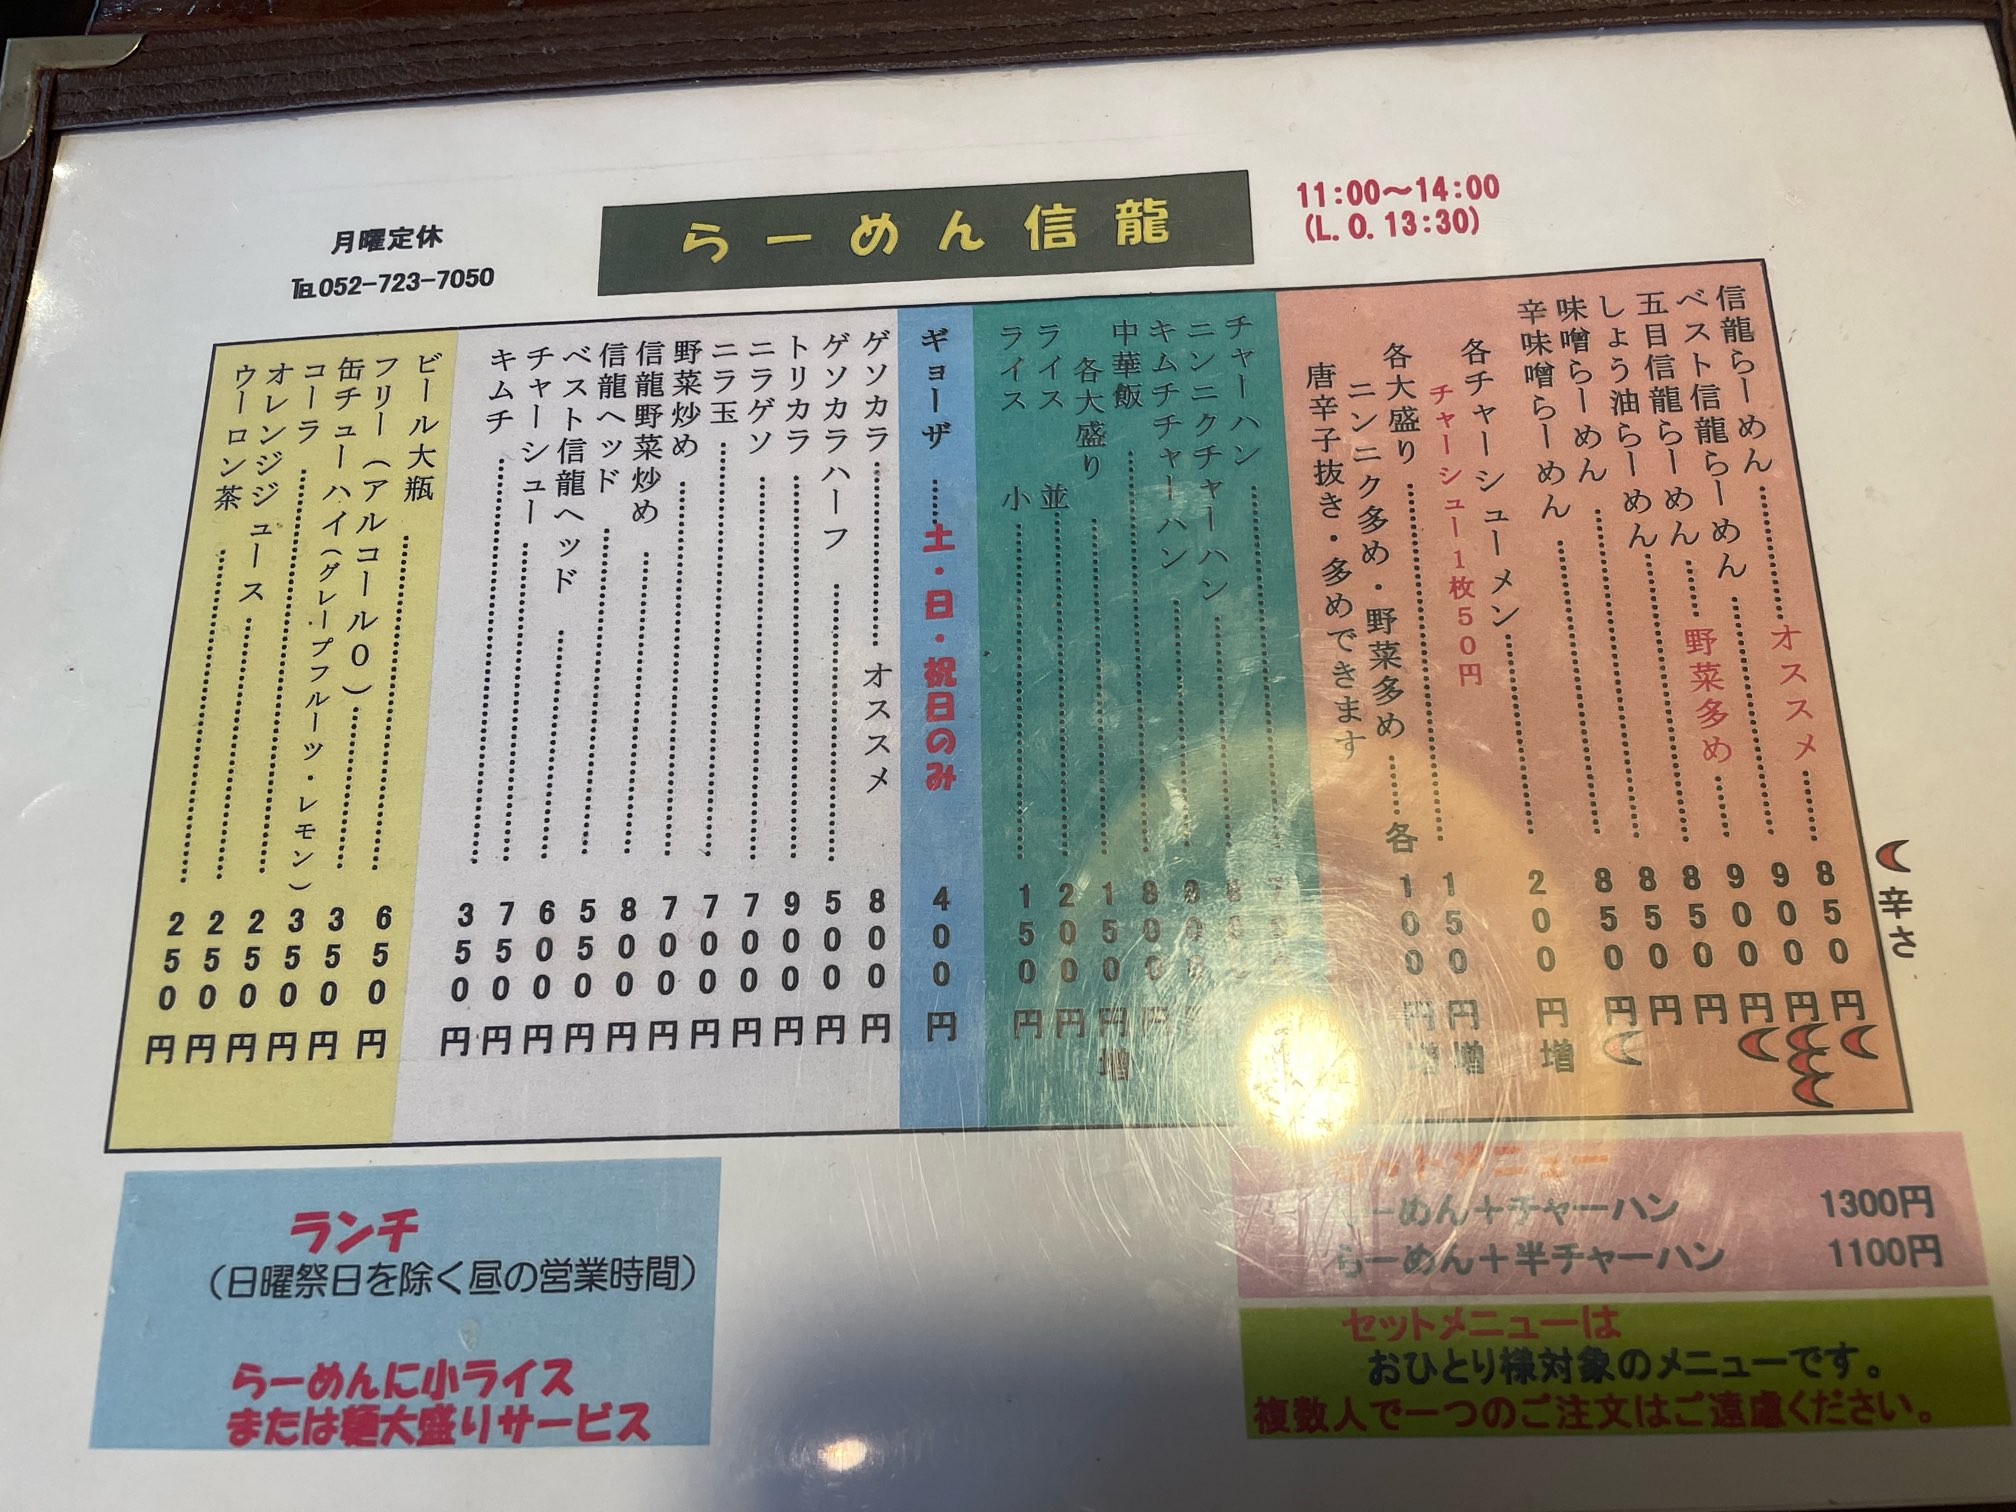 月曜定休
℡052-723-7050
らーめん信龍
11:00～14:00
(L.O.13:30)
信龍らーめん オススメ 850円
ベスト信龍らーめん 900円
五目信龍らーめん 野菜多め 900円
しょう油らーめん 850円
味噌らーめん 850円
辛味噌らーめん 850円
各チャーシューメン 200円増
チャーシュー1枚50円
各大盛り 150円増
ニンニク多め・野菜多め 各100円増
唐辛子抜き・多めできます
辛さ
チャーハン
ニンニクチャーハン
キムチチャーハン
中華飯 800円
各大盛り 150円増
ライス 並 200円
ライス 小 150円
ギョーザ 土・日・祝日のみ 400円
ゲソカラ オススメ 800円
ゲソカラハーフ 500円
トリカラ 900円
ニラゲソ 700円
ニラ玉 700円
野菜炒め 700円
信龍野菜炒め 800円
信龍ヘッド 550円
ベスト信龍ヘッド 600円
チャーシュー 750円
キムチ 350円
ビール大瓶 650円
フリー（アルコール0） 350円
缶チューハイ（グレープフルーツ・レモン） 350円
コーラ 250円
オレンジジュース 250円
ウーロン茶 250円
ランチ
（日曜祭日を除く昼の営業時間）
らーめんに小ライス
または麺大盛りサービス
セットメニュー
らーめん＋チャーハン 1300円
らーめん＋半チャーハン 1100円
セットメニューは
おひとり様対象のメニューです。
複数人で一つのご注文はご遠慮ください。